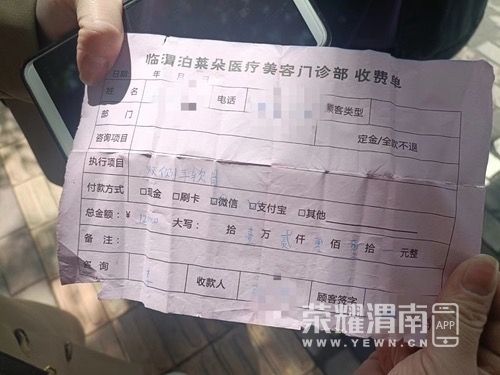 临渭泊莱朵医疗美容门诊部 收费单
日期: 年 月
姓名 电话 顾客类型
部门 定金/全款不退
咨询项目
执行项目
付款方式 □现金 □刷卡 □微信 □支付宝 □其他
总金额:¥ 大写: 拾 壹 万 贰 仟 零 佰 零 拾 元整
备注:
咨询 收款人 顾客签字
荣耀渭南 APP
WWW.YEWN.CN